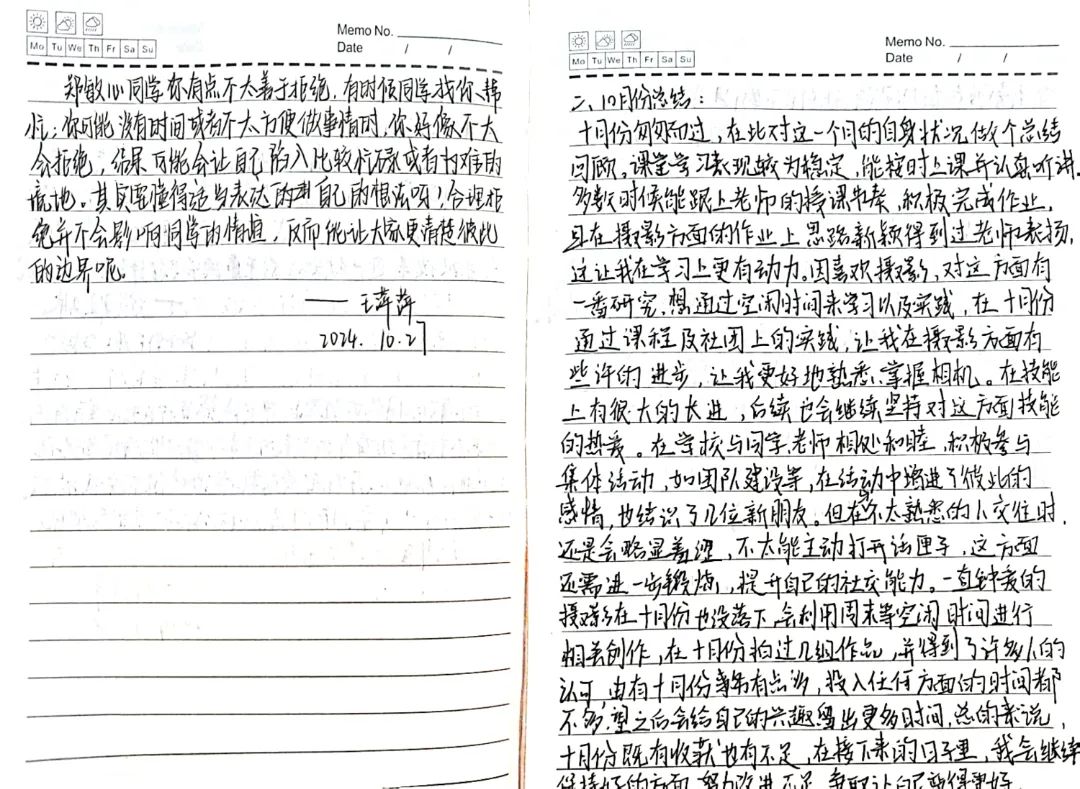 Memo No.
Mo Tu We Th Fr Sa Su
Date / /
郑敏心同学你有点不太善于拒绝,有时候同学找你帮
忙,你可能没有时间或者不太方便做事情时,你好像不太
会拒绝,结果可能会让自己陷入比较忙碌或者为难的
境地。其实要懂得适当表达的自己的想法呀!合理拒
绝并不会影响同学的情谊,反而能让大家更清楚彼此
的边界呢。
—— 王萍萍
2024. 10.27
Memo No.
Mo Tu We Th Fr Sa Su
Date / /
二、10月份总结:
十月份匆匆而过,在此对这一个月的自身状况做个总结
回顾,课堂学习表现较为稳定,能按时上课并认真听讲.
多数时候能跟上老师的授课节奏,积极完成作业,
且在摄影方面的作业上思路新颖得到过老师表扬,
这让我在学习上更有动力.因喜欢摄影,对这方面有
一番研究.想通过空闲时间来学习以及实践,在十月份
通过课程及社团上的实践,让我在摄影方面有
些许的进步,让我更好地熟悉、掌握相机。在技能
上有很大的长进,后续也会继续坚持对这方面技能
的热爱。在学校与同学,老师相处和睦,积极参与
集体活动,如团队建设等,在活动中增进了彼此的
感情,也结识了几位新朋友.但在不太熟悉的人交往时,
还是会略显羞涩,不太能主动打开话匣子,这方面
还需进一步锻炼,提升自己的社交能力。一直钟爱的
摄影在十月份也没落下,会利用周末等空闲时间进行
相关创作,在十月份拍过几组作品,并得到了许多人的
认可,由有十月份事务有点多,投入任何方面的时间都
不够,望之后会给自己的兴趣留出更多时间,总的来说,
十月份既有收获也有不足,在接下来的日子里,我会继续
保持好的方面,努力改进不足,争取让自己变得更好.